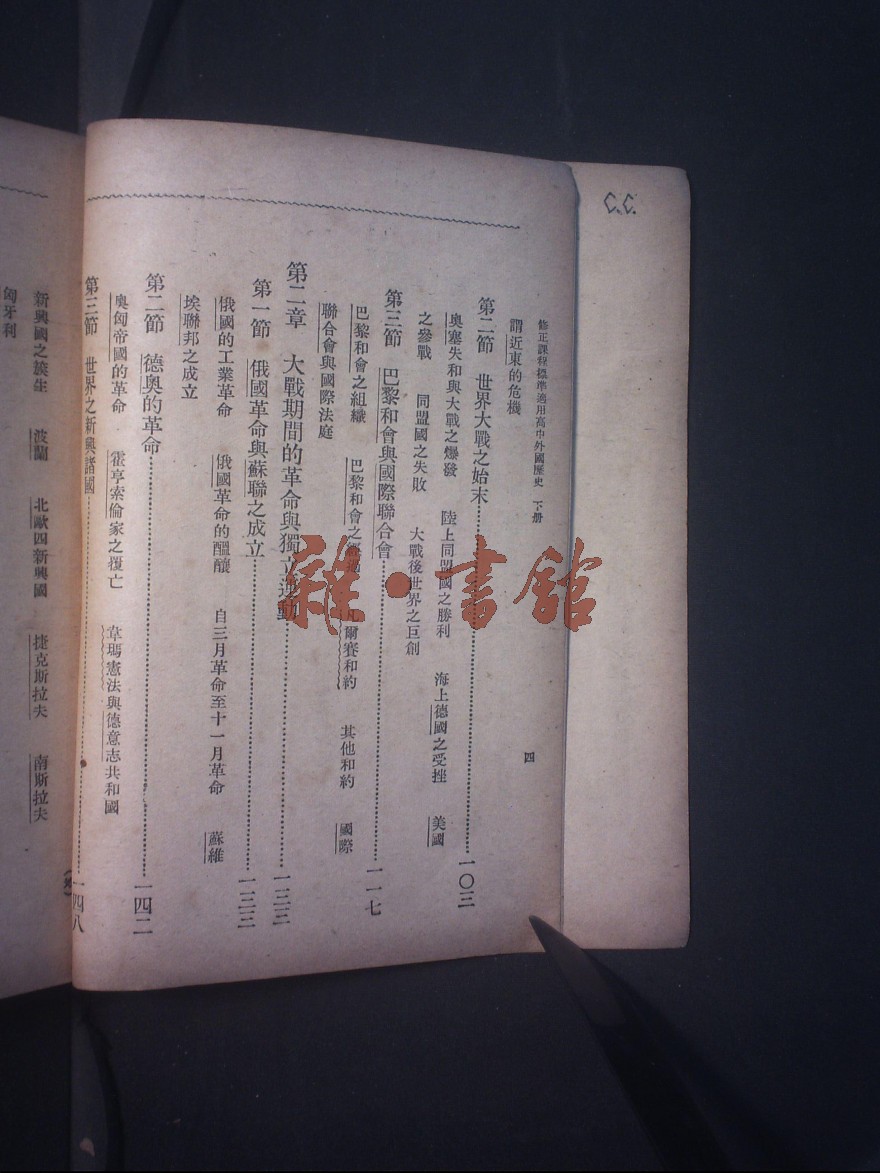 C.C.
修正課程標準適用高中外國歷史　下册
四
謂近東的危機
第二節　世界大戰之始末……一〇三
奥塞失和與大戰之爆發　陸上同盟國之勝利　海上德國之受挫　美國
之參戰　同盟國之失敗　大戰後世界之巨創
第三節　巴黎和會與國際聯合會……一一七
巴黎和會之組織　巴黎和會之　凡爾賽和約　其他和約　國際
聯合會與國際法庭
第二章　大戰期間的革命與獨立運動……一三三
第一節　俄國革命與蘇聯之成立……一三三
俄國的工業革命　俄國革命的醞釀　自三月革命至十一月革命　蘇維
埃聯邦之成立
第二節　德奥的革命……一四二
奥匈帝國的革命　霍亨索倫家之覆亡　韋瑪憲法與德意志共和國
第三節　世界之新興諸國……一四八
新興國之簇生　波蘭　北歐四新興國　捷克斯拉夫　南斯拉夫
匈牙利
雜·書館